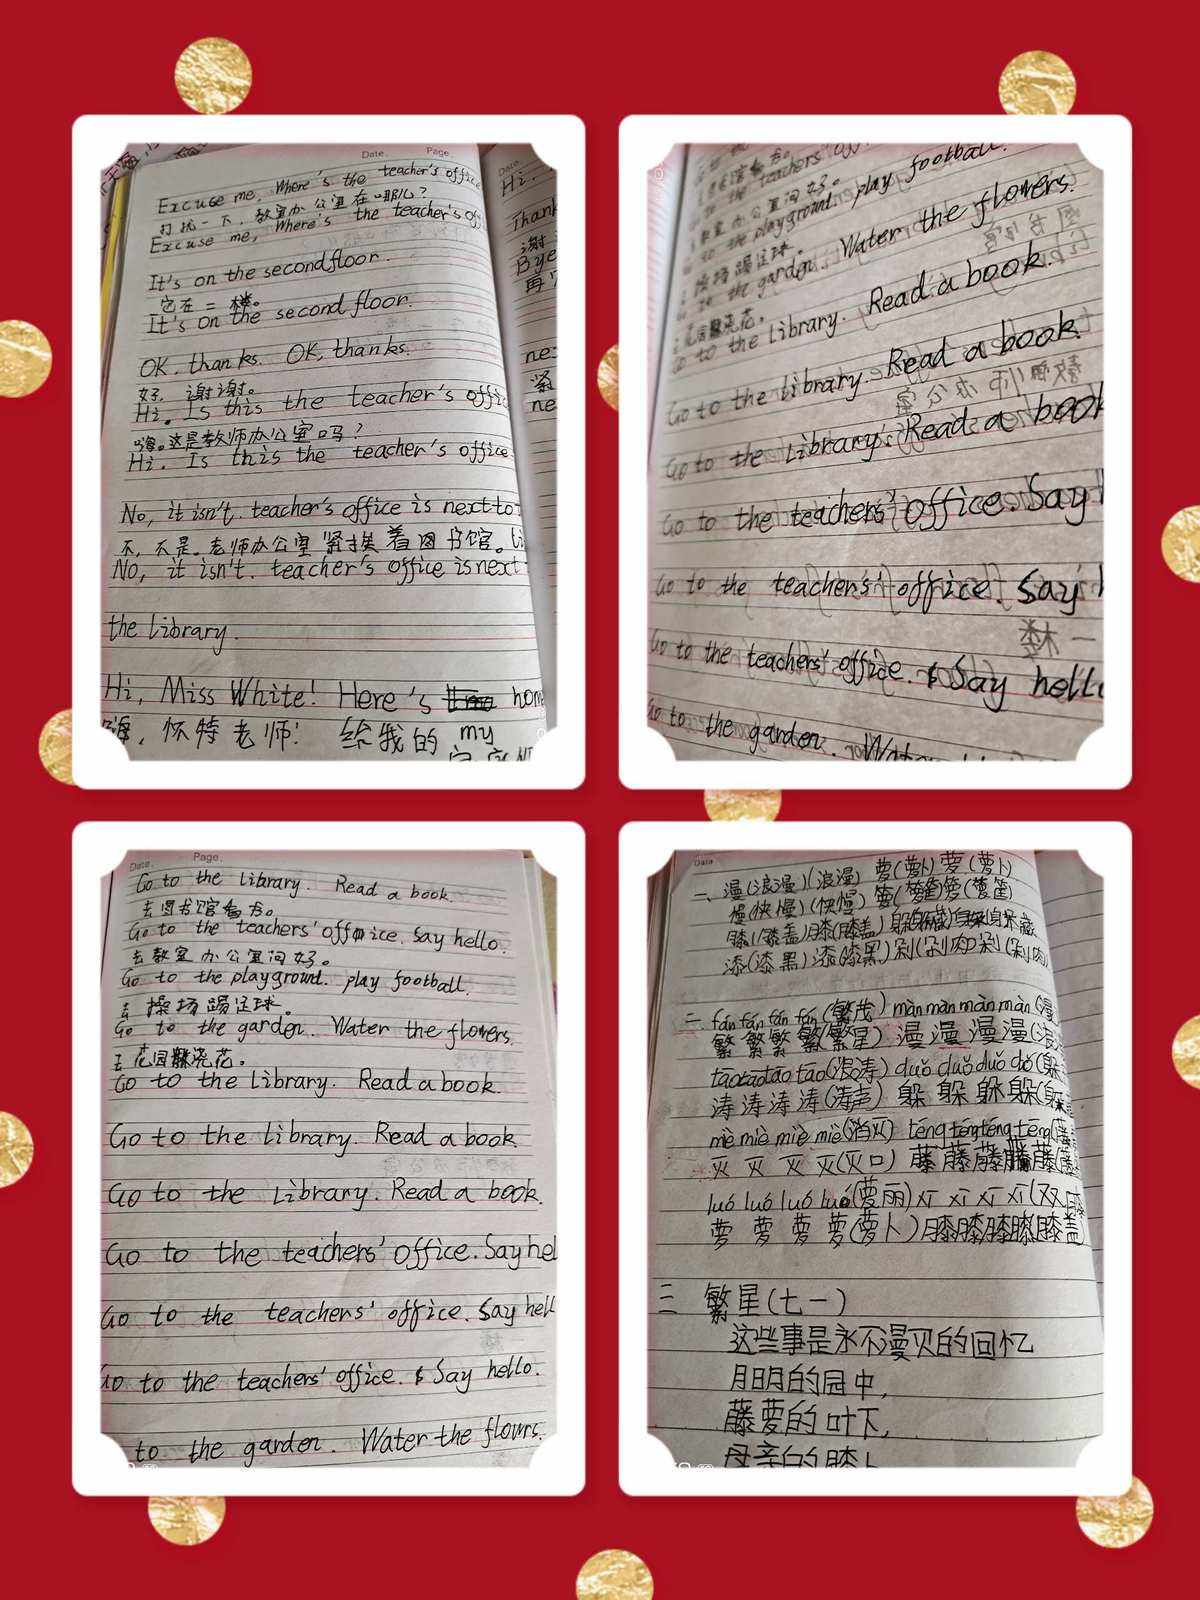 Date. Page.
Excuse me, Where's the teacher's office
打扰一下,教室办公室在哪儿?
Excuse me, Where's the teacher's of
It's on the second floor.
它在二楼。
It's on the second floor.
OK. thanks. OK, thanks.
好,谢谢。
Hi. Is this the teacher's offic
嗨。这是教师办公室吗?
Hi. Is this the teacher's office
No, it isn't. teacher's office is next to
不,不是。老师办公室紧挨着图书馆。
No, it isn't. teacher's office is next
the library.
Hi, Miss White! Here's hom
my
嗨,怀特老师! 给我的
Date.
Hi.
Thank
谢
Bye
再
nex
紧
ne
the teachers' off
办公室问好。
the playground. play football.
操场踢足球
to the garden. Water the flowers.
花园浇花。
Go to the library. Read a book.
Go to the library. Read a book.
Go to the library. Read a book
Go to the teachers' office. Say h
Go to the teachers' office. Say h
Go to the teachers' office. Say hello
Go to the garden. Water
Date. Page.
Go to the library. Read a book.
去图书馆看书。
Go to the teachers' office. Say hello.
去教室办公室问好。
Go to the playground. play football.
去操场踢足球。
Go to the garden. Water the flowers.
去花园浇花。
Go to the library. Read a book.
Go to the library. Read a book.
Go to the library. Read a book.
Go to the teachers' office. Say hel
Go to the teachers' office. Say hell
Go to the teachers' office. Say hello.
to the garden. Water the flowrs.
Date
一、漫(浪漫)(浪漫) 萝(萝卜)萝(萝卜)
慢(快慢)(快慢) 箩(箩筐)箩(箩筐)
膝(膝盖)膝(膝盖)躲(躲藏)躲(躲藏
漆(漆黑)漆(漆黑)剁(剁肉)剁(剁肉
二 fán fán fán fán (繁茂) màn màn màn màn (漫
繁 繁 繁 繁(繁星) 漫 漫 漫 漫(浪
tāo tāo tāo tāo(浪涛) duǒ duǒ duǒ duǒ(躲
涛 涛 涛 涛(涛声) 躲 躲 躲 躲(躲
miè miè miè miè(消灭) téng téng téng téng(藤
灭 灭 灭 灭(灭口) 藤 藤 藤 藤(藤
luó luó luó luó(萝丽) xī xī xī xī(双膝
萝 萝 萝 萝(萝卜) 膝膝膝膝(膝盖)
三 繁星(七一)
这些事是永不漫灭的回忆
月明的园中,
藤萝的叶下,
母亲的膝上